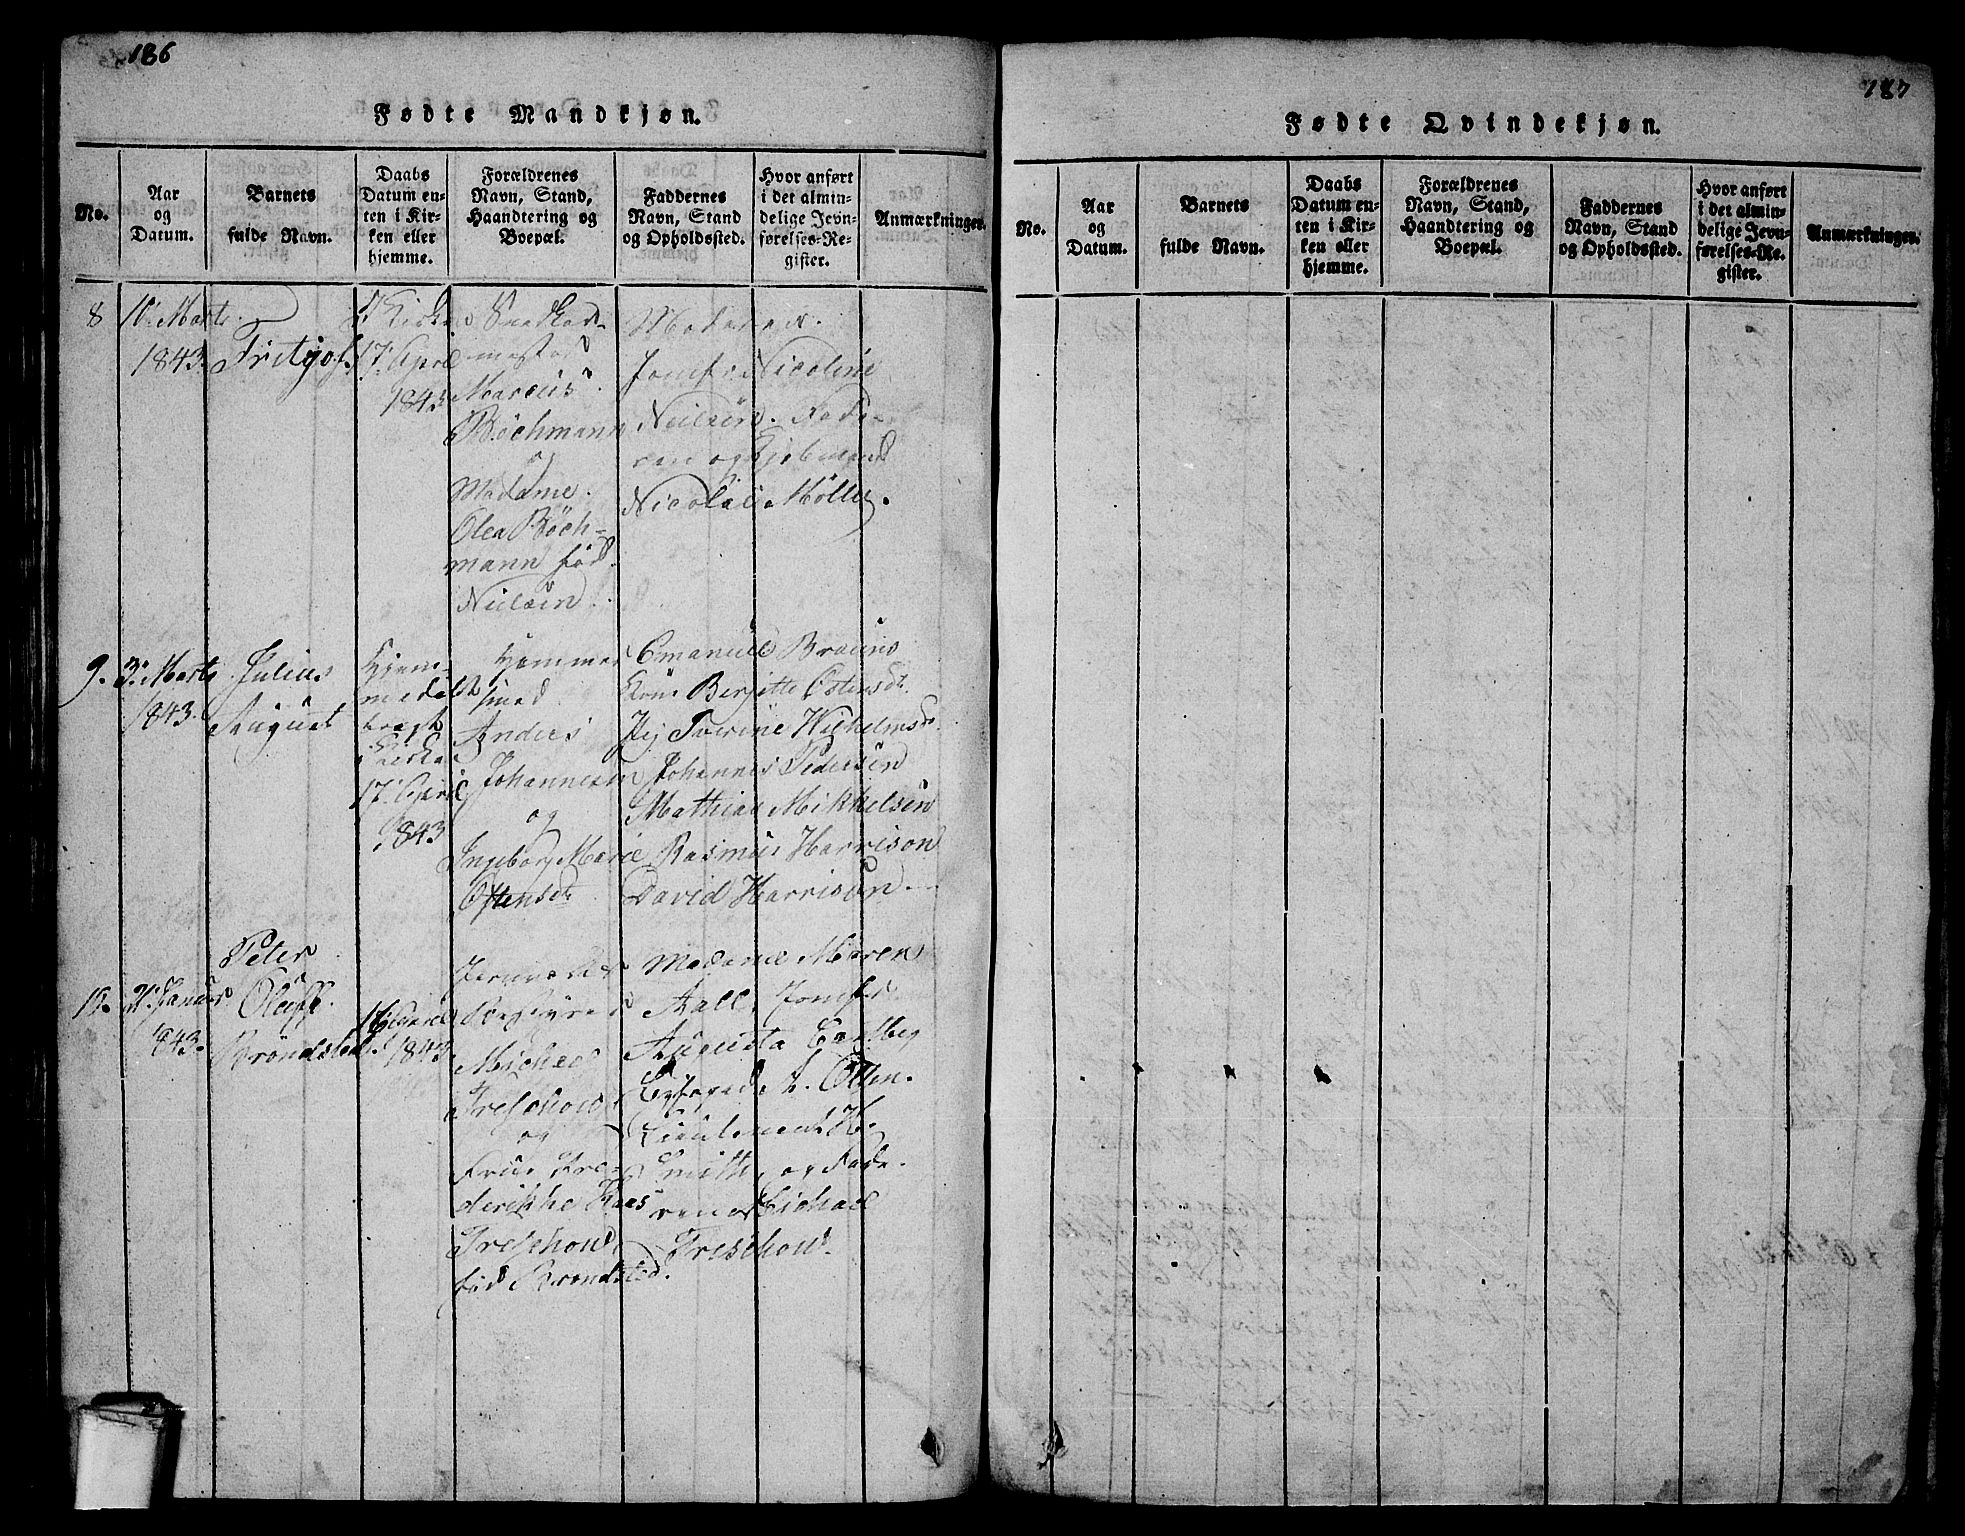 186
Fødte Mandkjøn.
No.
Aar
og
Datum.
Barnets
fulde Navn.
Daabs
Datum en-
ten i Kir-
ken eller
hjemme.
Forældrenes
Navn, Stand,
Haandtering og
Boepæl.
Faddernes
Navn, Stand
og Opholdssted.
Hvor anført
i det almin-
delige Jevn-
førelses-Re-
gister.
Anmærkninger.
8
10. Marts
1843.
Fritjof.
i Kirken
17. April
1843
Snedker-
mester
Marcus
Bøchmann
og
Madame
Olea Bøch-
mann fød
Nielsen.
Moderen.
Jomfr. Nicoline
Nielsen. Fade-
ren og Kjøbmand
Nicolai Møller.
9.
3. Marts
1843.
Julius
August
Hjem-
medøbt
bragt
i Kirken
17. April
1843
Hammer
smed
Anders
Johannesen
og
Ingeborg Marie
Ostensdt.
Emanuel Brauns
Kone Berjitte Ostensdt.
Pij Severine Wilhelmsdt.
Johannes Pedersen
Mathias Mikkelsen
Rasmus Harrison
David Harrison
10.
21. Januar
1843.
Peter
Oluff
Brøndsted.
16 April
1843
Jernværks
Michael
Treschow
og
Frue Fre-
derikke Haas
Treschow
fød Brøndsted.
Madame Maren
Aall, Jomfr.
Augusta
L. Otten.
Lieutenant H.
Smith, og Fade-
ren Michael
Treschow.
187
Fødte Qvindekjøn.
No.
Aar
og
Datum.
Barnets
fulde Navn.
Daabs
Datum en-
ten i Kir-
ken eller
hjemme.
Forældrenes
Navn, Stand,
Haandtering og
Boepæl.
Faddernes
Navn, Stand
og Opholdssted.
Hvor anført
i det almin-
delige Jevn-
førelses-Re-
gister.
Anmærkninger.